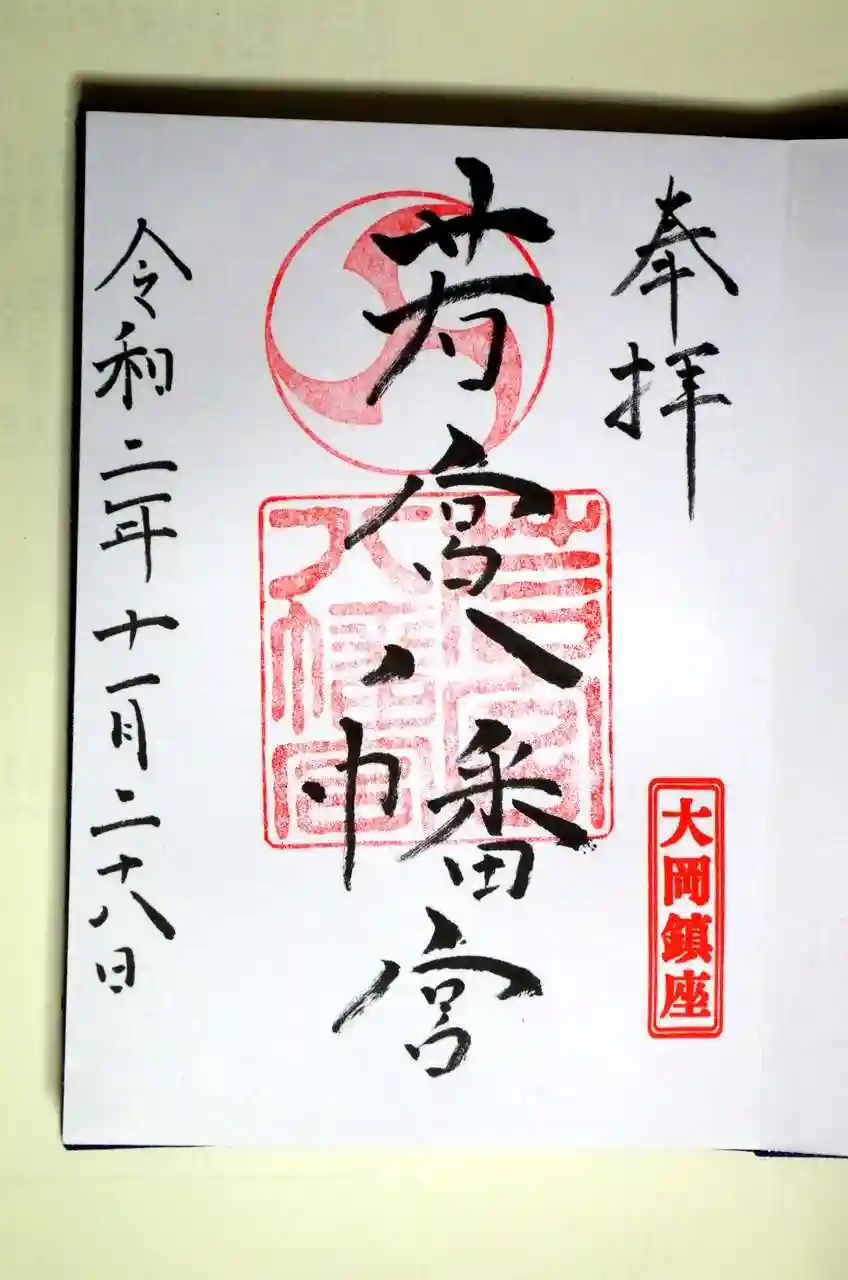 奉拝
大岡鎮座
若宮八幡宮
若宮
八幡宮
令和二年十一月二十八日